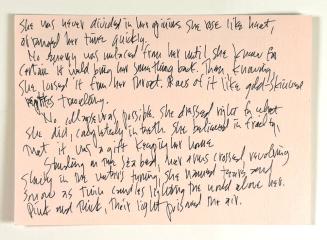 She was never divided in her opinions she rose like heart,
her time quickly.
No energy was unlaced from her until she knew for
certain it would bring her something back. Then, knowing
she loosed it from her throat. Rows of it like gold-skinned
traveling.
No collapse was possible. she dressed right to what
she did, completely in teeth she believed in frailty,
that it was a gift keeping her home
Standing on the sea bed, her arms crossed, revolving
slowly in the waters turning, she named tears and
snow as twin candles lighting the world above her.
Pink and Pink, their light prismed the air.